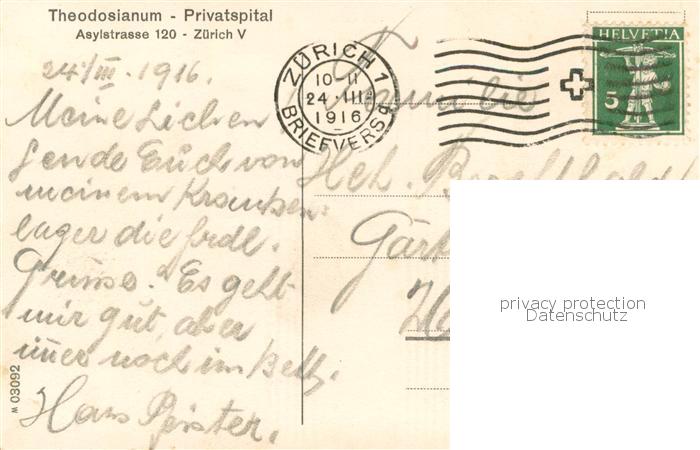 Theodosianum - Privatspital
Asylstrasse 120 - Zürich V
24/III. 1916.
Meine Lieben
sende Euch von
meinem Kranken-
lager die frdl.
Grüsse. Es geht
mir gut, aber
im̅er noch im Bett.
Hans
M 03092
ZÜRICH 1
10-11
24·III-
1916
BRIEFVERSd
HELVETIA
5
Familie
Hch.
privacy protection
Datenschutz